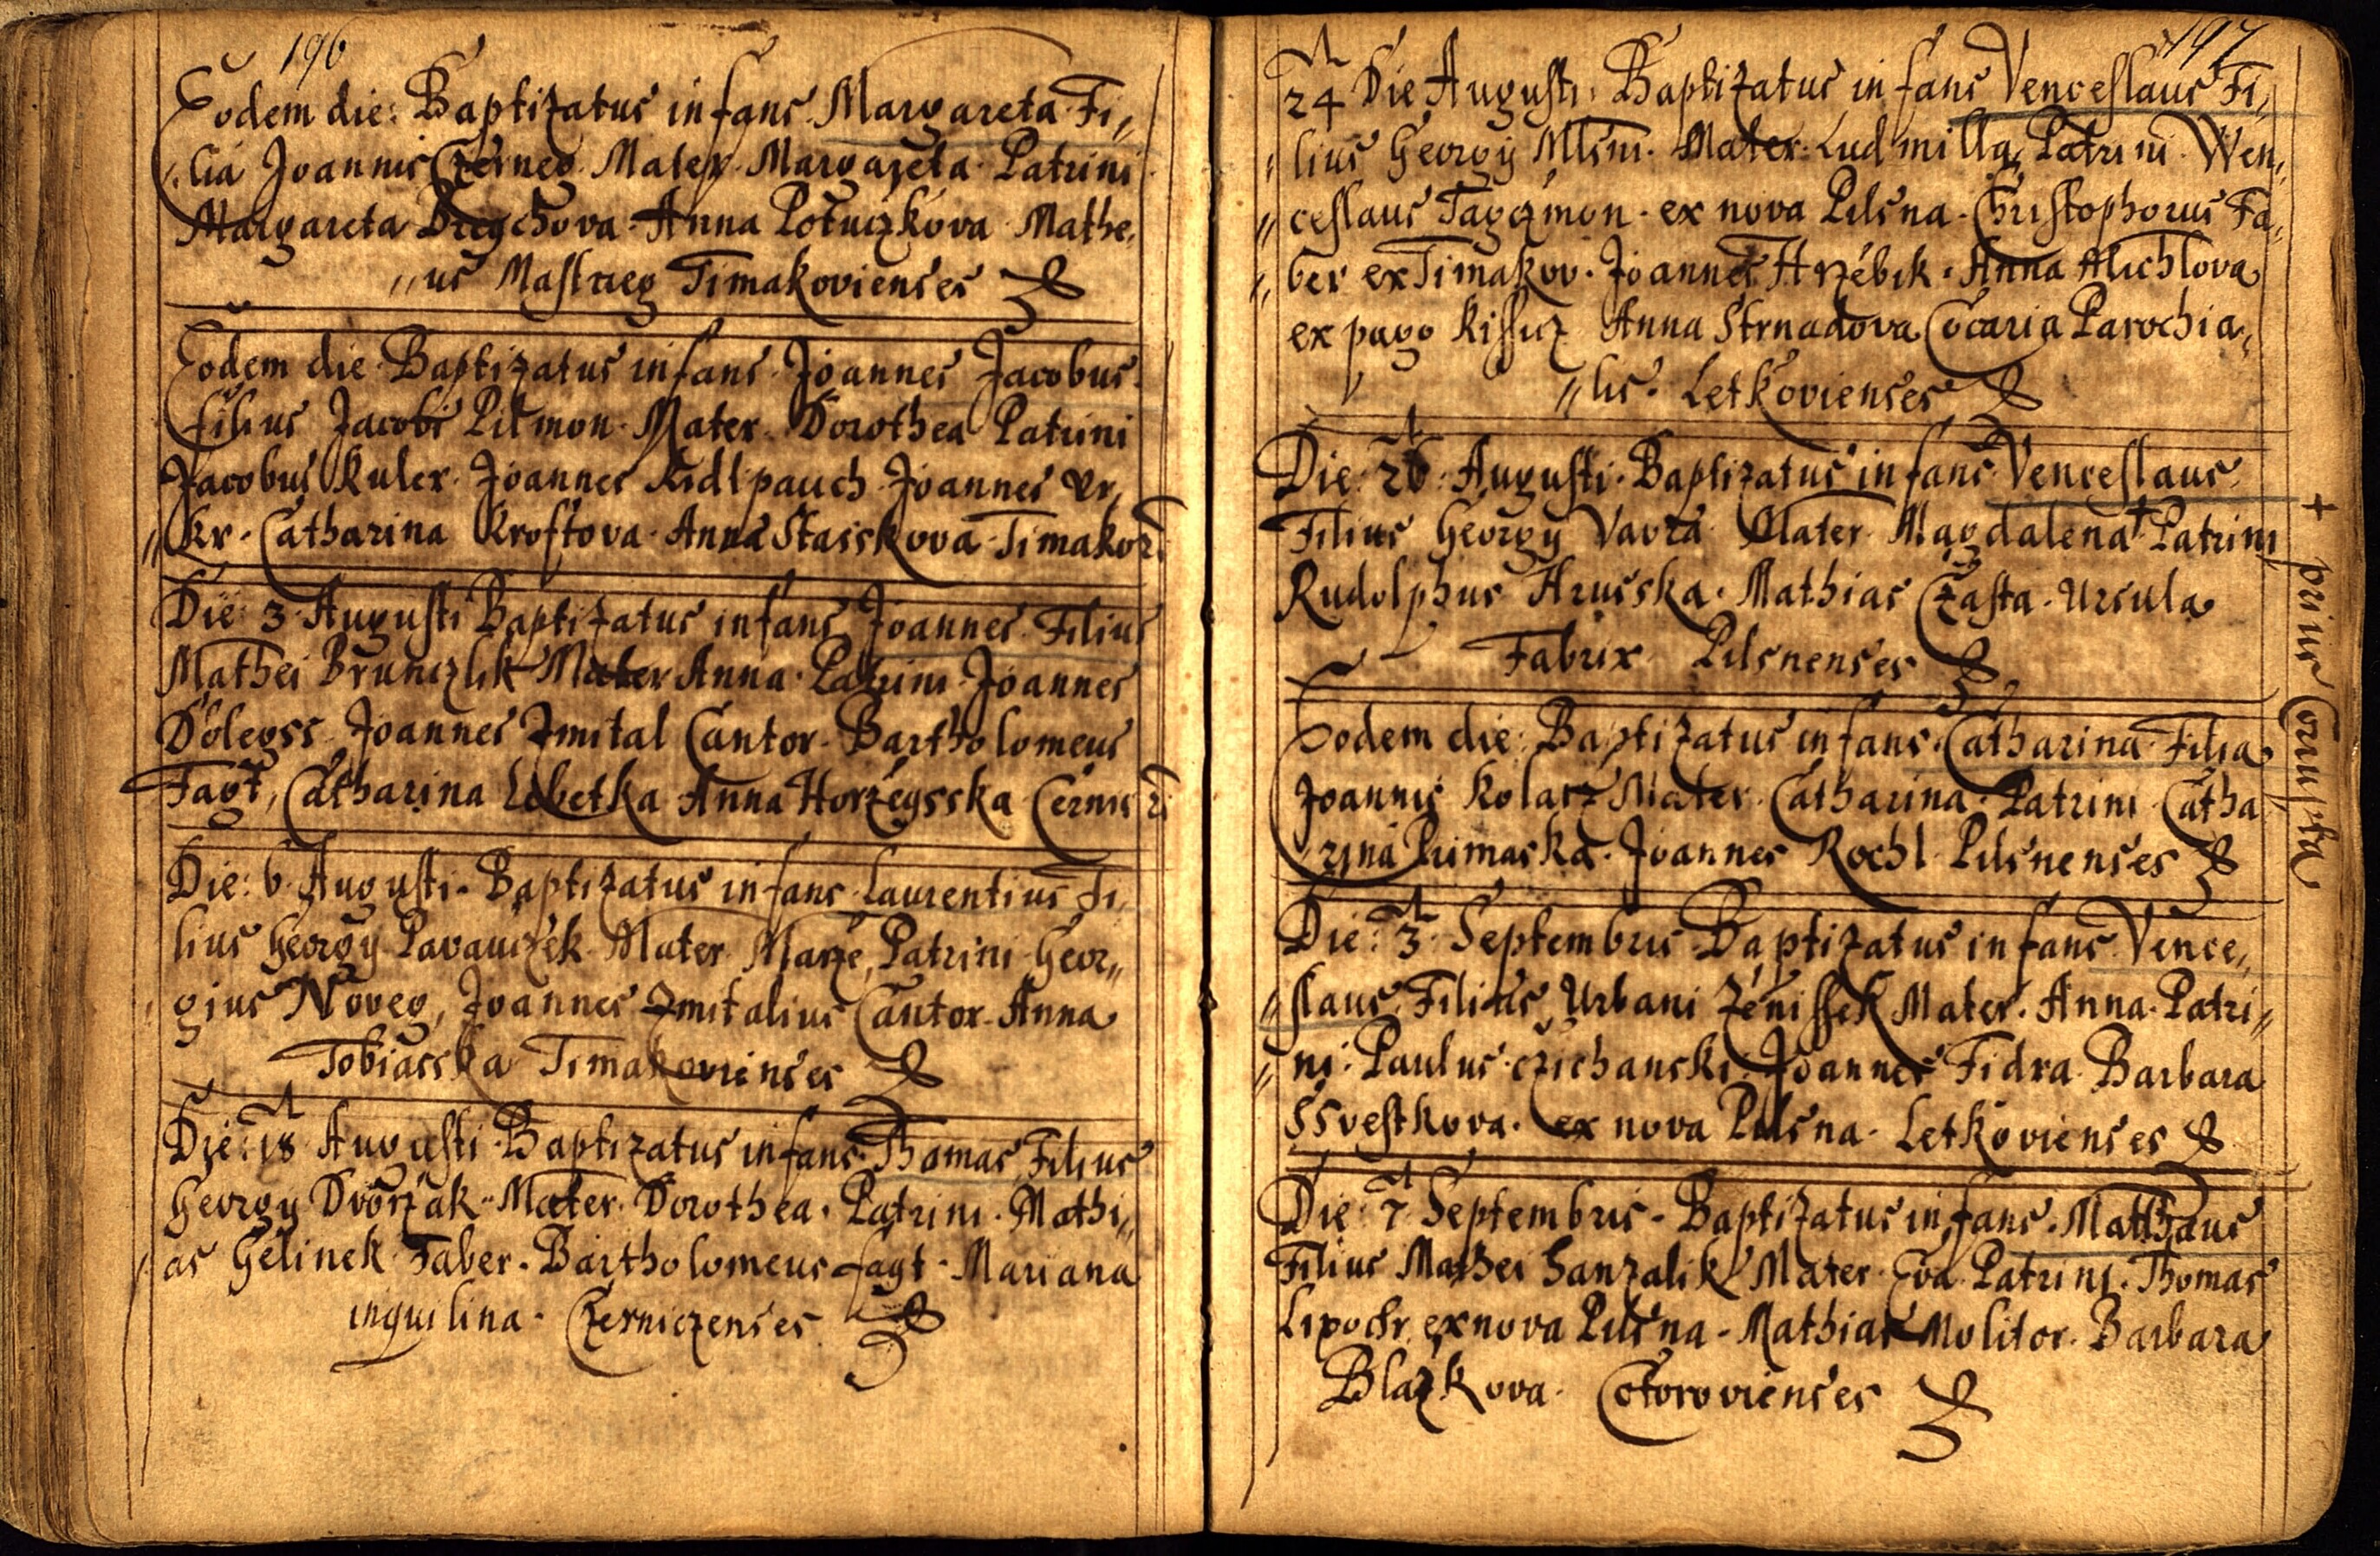 196
Eodem die: Baptizatus infans Margareta Fi„
„lia Joannis Czerneg. Mater. Margareta. Patrini
Margareta Dreychova. Anna Potuczkova Mathe„
„us Mastneg Timakovienses
Eodem die Baptizatus infans Joannes Jacobus
filius Jacobi Pilmon. Mater. Dorothea Patrini
Jacobus Kuler. Joannes Kidlpauch Joannes Vr„
„kr. Catharina Kroftova. Anna Stasskova Timakov:
Die: 3 Augusti Baptizatus infans Joannes Filius
Mathei Brunczlik Mater Anna. Patrini Joannes
Dolegss Joannes Zmital Cantor. Bartholomeus
Fagt, Catharina Lebetka Anna Horzegsska Cernic:
Die: 6 Augusti. Baptizatus infans Laurentius Fi„
lius Georgy Pavauczek Mater Marze, Patrini Geor„
gius Noveg, Joannes Zmitalius Cantor. Anna
Tobiasska Timakovienses
Die: 18 Augusti. Baptizatus infans. Thomas Filius
Georgy Dvorzak. Mater. Dorothea. Patrini. Mathi„
as Gelinek Faber. Bartholomeus fagt. Mariana
inquilina. Czerniczenses
197
24 Die Augusti. Baptizatus infans Venceslaus Fi„
„lius Georgy Mlsni. Mater. Ludmilla, Patrini. Wen„
„ceslaus Tagczmon. ex nova Pilsna. Christophorus Fa„
„ber ex Timakov. Joannes Hrzebik. Anna Michlova
ex pago Kissicz Anna Strnadova Cocaria Parochia„
„lis. Letkovienses
Die: 26. Augusti. Baptizatus infans Venceslaus
Filius Georgy Vavra Mater Magdalena + Patrini
Rudolphus Hrusska. Mathias Czasta. Ursula
Fabrix Pilsnenses
+ prius Corrupta
Eodem die: Baptizatus infans. Catharina Filia
Joannis Kolarz Mater. Catharina. Patrini Catha
rina Primaska. Joannes Rochl Pilsnenses
Die: 3 Septembris Baptizatus infans Vence„
„slaus. Filius, Urbani Zenissek Mater. Anna. Patri„
„ni. Paulus czichanski. Joannes Fidra. Barbara
SSvestkova. ex nova Pilsna. Letkovienses
Die: 7 Septembris. Baptizatus infans. Matthæus
Filius Mathei Hanzalik Mater. Eva. Patrini. Thomas
ex nova Pilsna. Mathias Molitor. Barbara
Blazkova. Cotorovienses